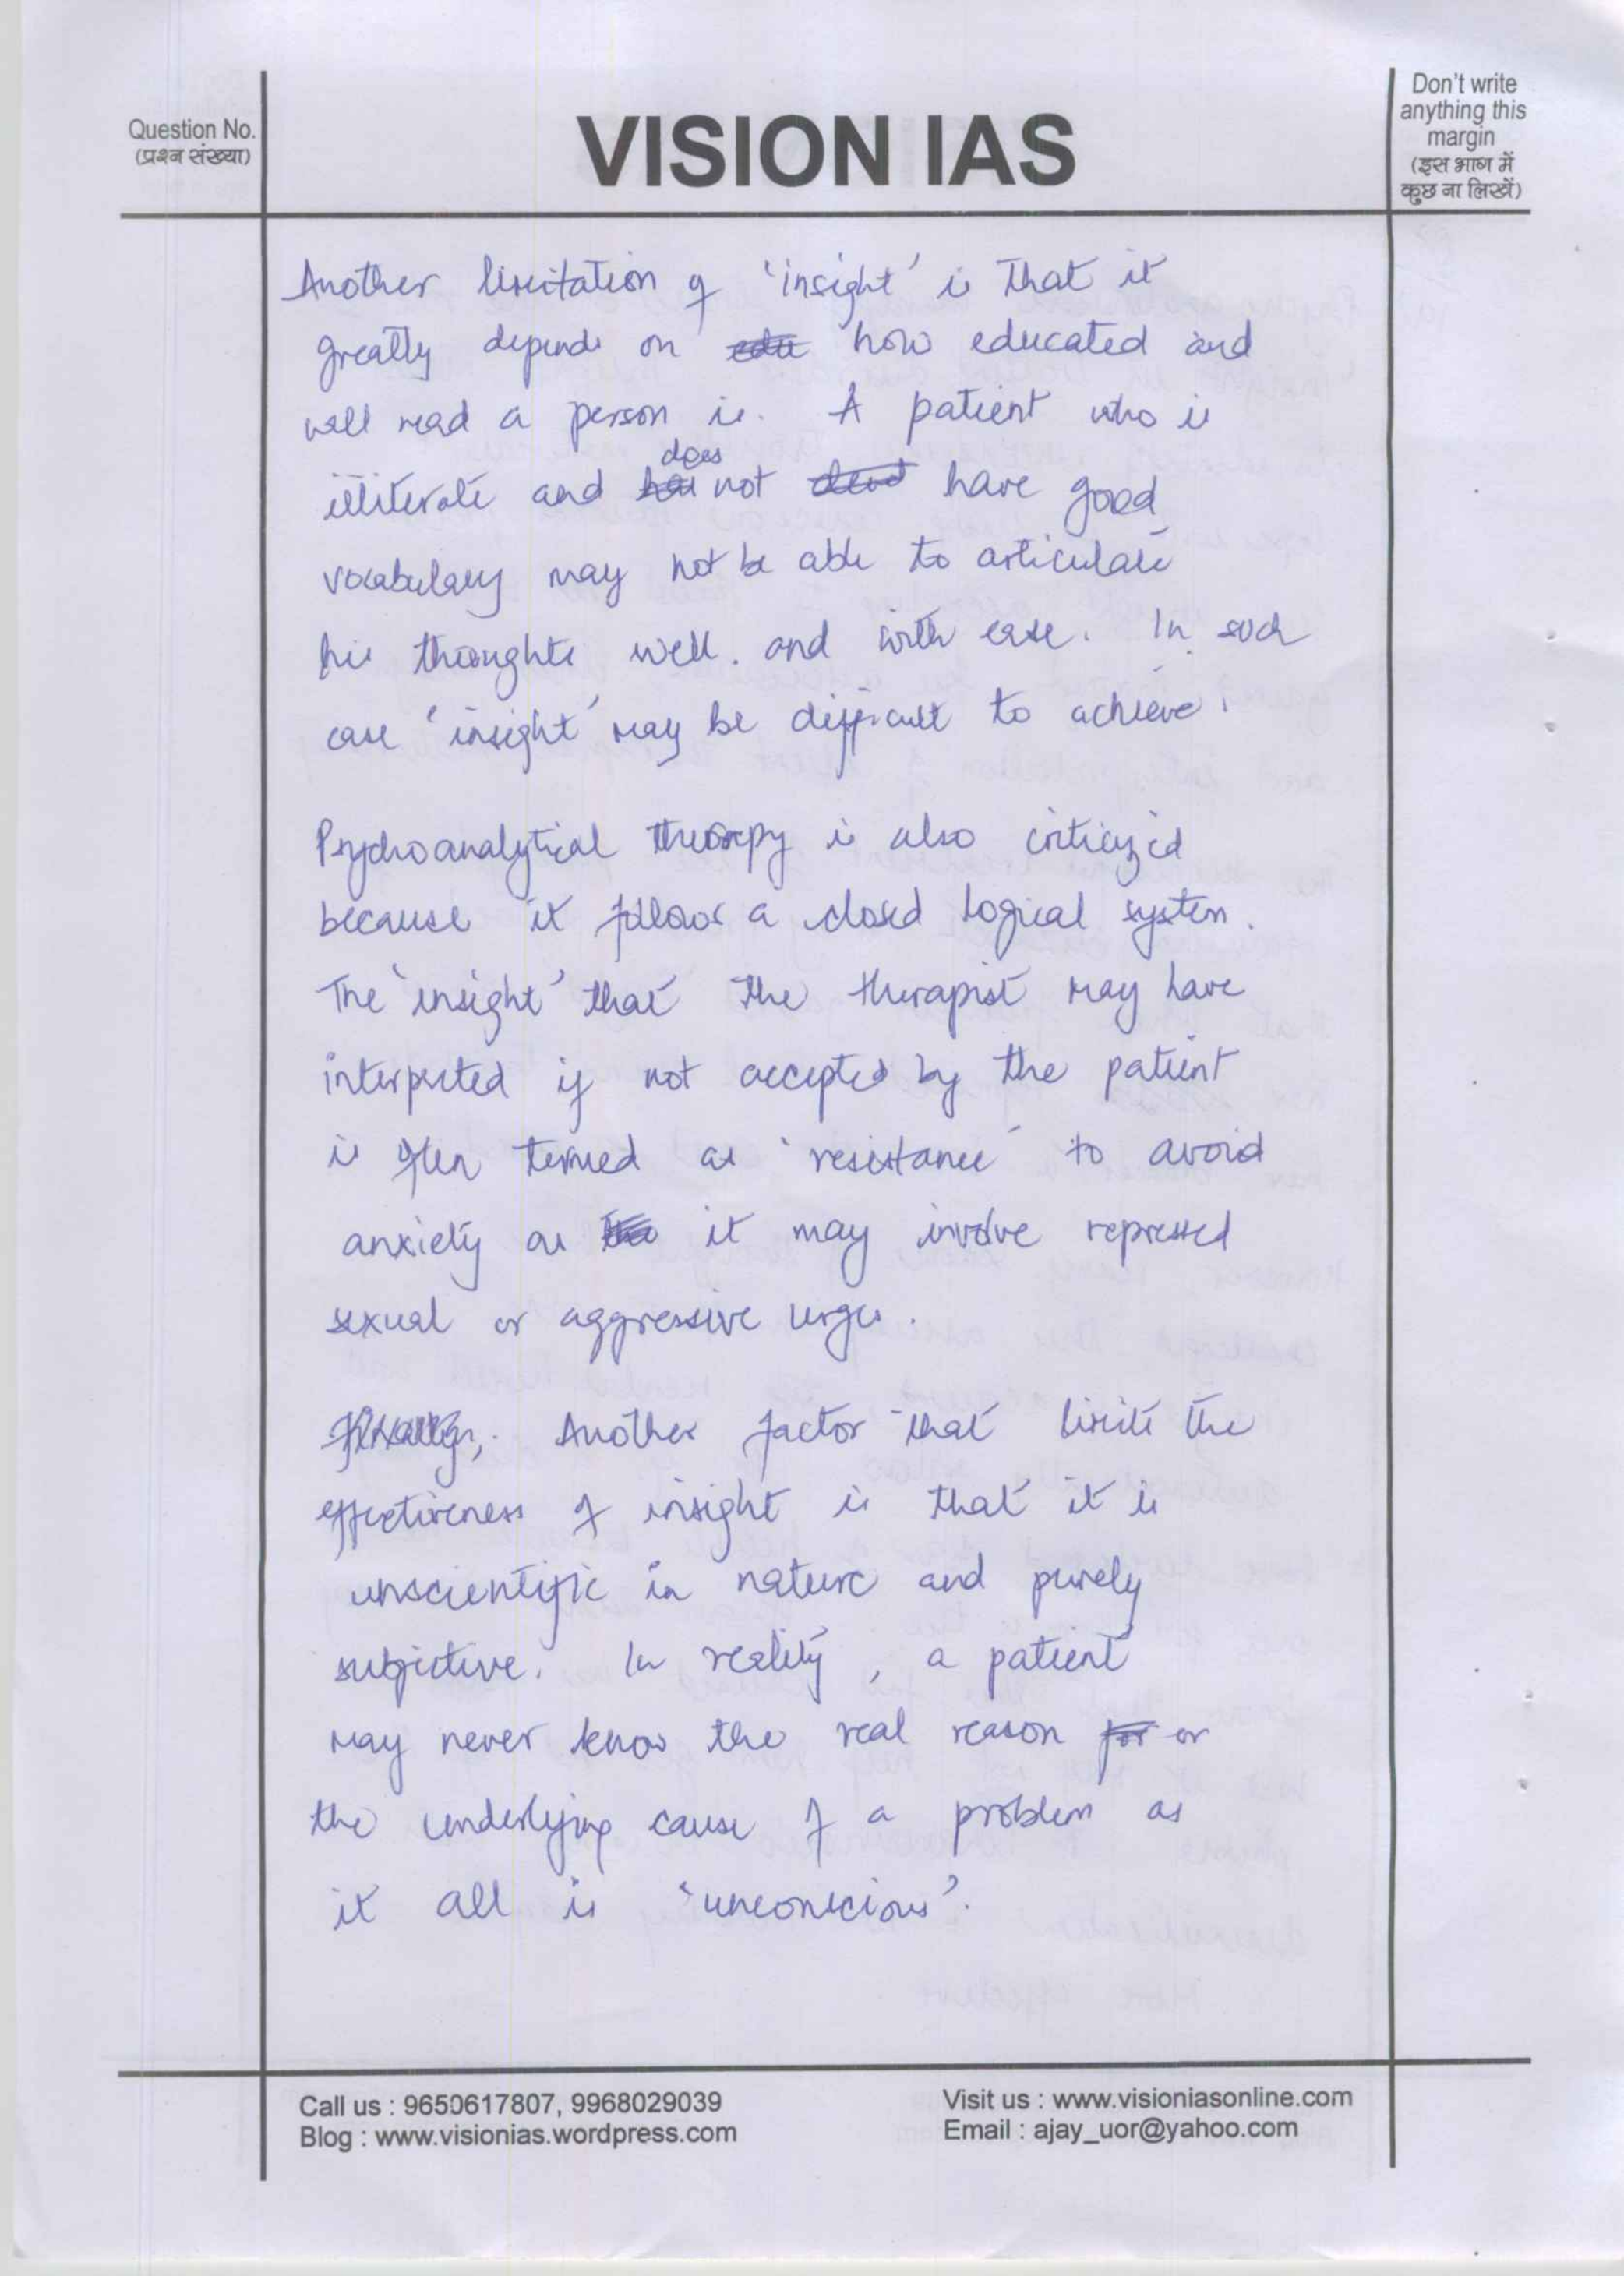 Question No.
(प्रश्न संख्या)
VISION IAS
Don't write
anything this
margin
(इस भाग में
कुछ ना लिखें)
Another limitation of 'insight' is that it
greatly depends on edu how educated and
well read a person is. A patient who is
does
illiterate and has not have good
vocabulary may not be able to articulate
his thoughts well. and with ease. In such
case 'insight' may be difficult to achieve.
Psychoanalytical therapy is also criticized
because it follows a closed logical system.
The 'insight' that the therapist may have
interpreted if not accepted by the patient
is often termed as 'resistance' to avoid
anxiety as it may involve repressed
sexual or aggressive urges.
Finally, Another factor that limits the
effectiveness of insight is that it is
unscientific in nature and purely
subjective. In reality, a patient
may never know the real reason for or
the underlying cause of a problem as
it all is 'unconscious'.
Call us : 9650617807, 9968029039
Blog : www.visionias.wordpress.com
Visit us : www.visioniasonline.com
Email : ajay_uor@yahoo.com